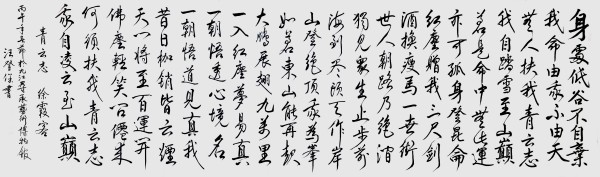 身处低谷不自弃
我命由我不由天
无人扶我青云志
我自踏雪至山巅
若是命中无此运
亦可孤身登昆仑
红尘赠我三尺剑
酒换瘦马一世街
世人朝路乃绝涧
独见众生止步前
海到尽头天作岸
山登绝顶我为峰
如若东山能再起
大鹏展翅九万里
一入红尘梦易真
一朝悟透心境名
一朝悟道见真我
昔日枷锁皆云烟
天门将至百运开
佛尘轻笑问仙来
何须扶我青云志
我自凌云至山巅
青云志 徐霞客
丙午年
汪登伟书